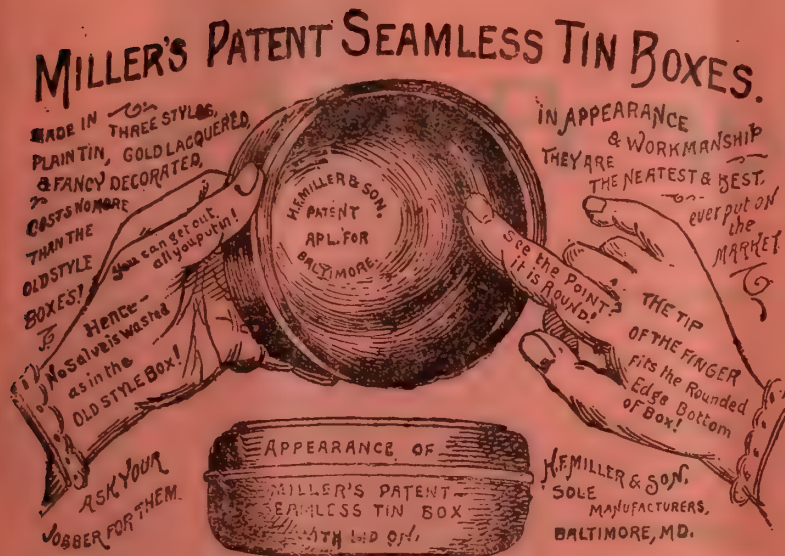 MILLER'S PATENT SEAMLESS TIN BOXES.
MADE IN THREE STYLES,
PLAIN TIN, GOLD LACQUERED,
& FANCY DECORATED,
COSTS NO MORE
THAN THE
OLD STYLE
BOXES!
you can get out,
all you put in!
Hence-
No Salve is wasted
as in the
OLD STYLE BOX!
H.F. MILLER & SON.
PATENT
APL. FOR
BALTIMORE.
IN APPEARANCE
& WORKMANSHIP
THEY ARE
THE NEATEST & BEST.
ever put on
the
MARKET
See the POINT?
it is ROUND!
THE TIP
OF THE FINGER
fits the Rounded
Edge Bottom
OF BOX!
ASK YOUR
JOBBER FOR THEM.
APPEARANCE OF
MILLER'S PATENT
SEAMLESS TIN BOX
WITH LID ON.
H.F. MILLER & SON.
SOLE
MANUFACTURERS,
BALTIMORE, MD.